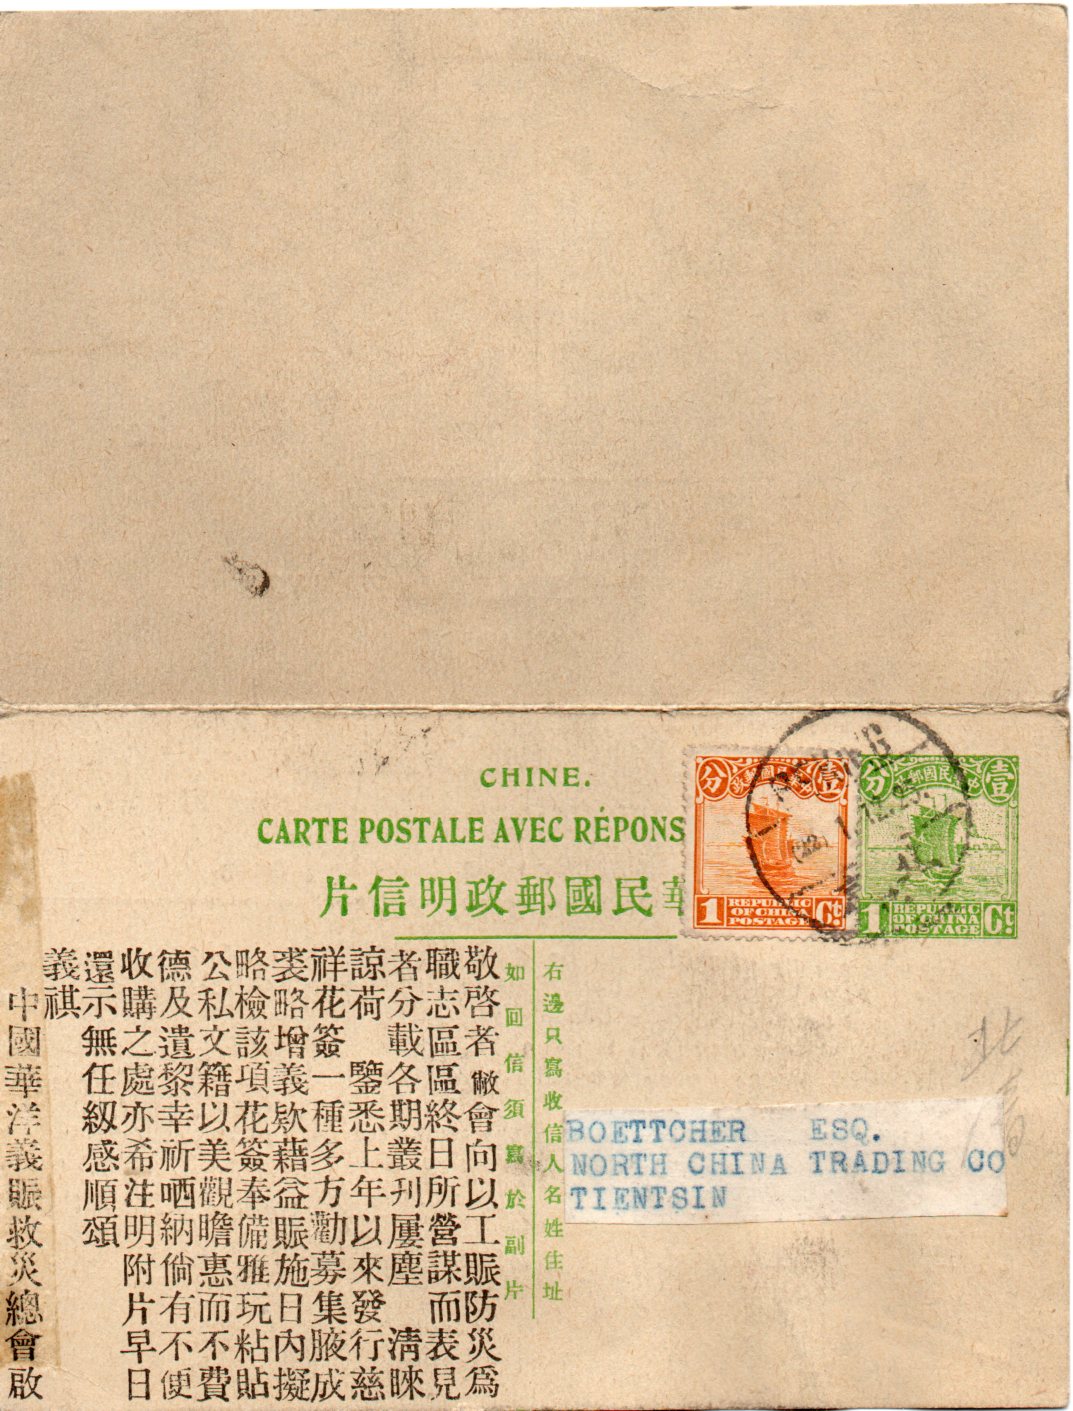 CHINE.
CARTE POSTALE AVEC RÉPONS
片信明政郵國民華
分 壹
1 REPUBLIC OF CHINA POSTAGE Ct
分 中華民國郵政 壹
1 REPUBLIC OF CHINA POSTAGE Ct
PEKING
(22) 1.12.25.
右邊只寫收信人名姓住址
如回信須寫於副片
BOETTCHER ESQ.
NORTH CHINA TRADING CO
TIENTSIN
北
敬啓者敝會向以工賑防災爲
職志區區終日所營謀而表見
者分載各期叢刊屢塵 清睞
諒荷 鑒悉上年以來發行慈
祥花簽一種多方勸募集腋成
裘略增義欵藉益賑施日內擬
略檢該項花簽奉備雅玩粘貼
公私文籍以美觀瞻惠而不費
德及遺黎幸祈哂納倘有不便
收購之處亦希注明附片早日
還示無任紉感順頌
義祺
中國華洋義賑救災總會啟